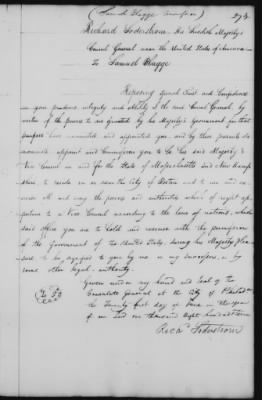 (Samuel Blagge Commission)
Richard Soderstrom, His Swedish Majesty's
Consul General near the United States of America
To Samuel Blagge
Reposing special Trust and Confidence
in your prudence integrity and Ability I the said Consul General, by
virtue of the powers to me granted by his Majesty's Government for that
purpose have committed and appointed you, and by these presents do
commit appoint and Commission you To be his said Majesty's
Vice Consul in and for the State of Massachusetts and New Hamp
shire to reside in or near the City of Boston and to use and ex
ercise all and may the powers and authorities which of right ap
pertain to a Vice Consul according to the laws of nations, which
said office you are to hold and exercise with the permission
of the Government of the United States, during his Majesty's plea
sure to be signified to you by me or my Successors, or by
some other legal authority.
Given under my hand and Seal of the
Consulate General at the City of Philada on
the Twenty first day of in the year
of our Lord one thousand eight hundred
Richd Soderstrom